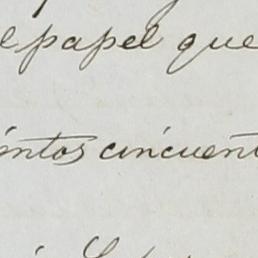 el papel que
entos cincuent